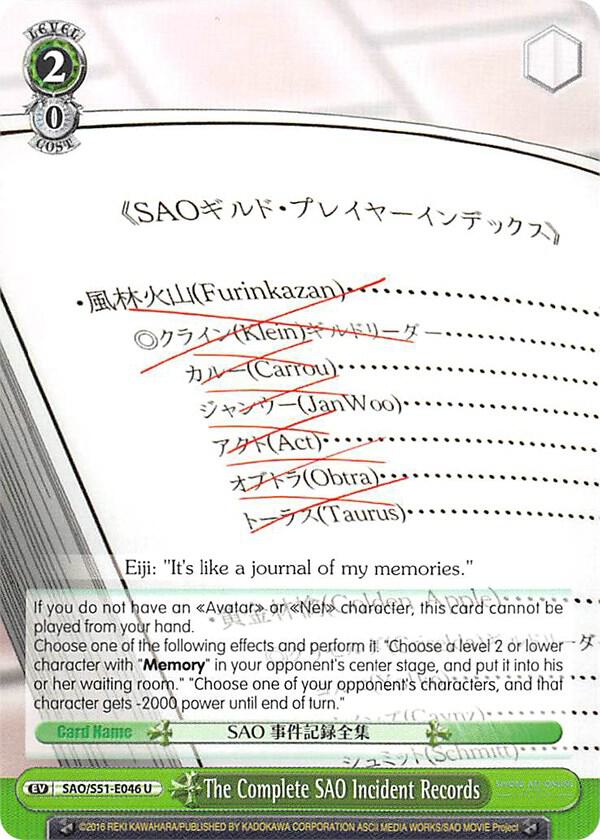 LEVEL
2
0
COST
《SAOギルド・プレイヤーインデックス》
・風林火山(Furinkazan)
◎クライン(Klein)ギルドリーダー
カルー(Carrou)
ジャンウー(JanWoo)
アクト(Act)
オブトラ(Obtra)
トーラス(Taurus)
Eiji: "It's like a journal of my memories."
・黄金林檎(Golden Apple)
If you do not have an «Avatar» or «Net» character, this card cannot be
played from your hand.
Choose one of the following effects and perform it. "Choose a level 2 or lower
character with "Memory" in your opponent's center stage, and put it into his
or her waiting room." "Choose one of your opponent's characters, and that
character gets -2000 power until end of turn."
Card Name
SAO 事件記録全集
シュミット(Schmitt)
EV SAO/S51-E046 U
The Complete SAO Incident Records
SWORD ART ONLINE
©2016 REKI KAWAHARA/PUBLISHED BY KADOKAWA CORPORATION ASCII MEDIA WORKS/SAO MOVIE Project